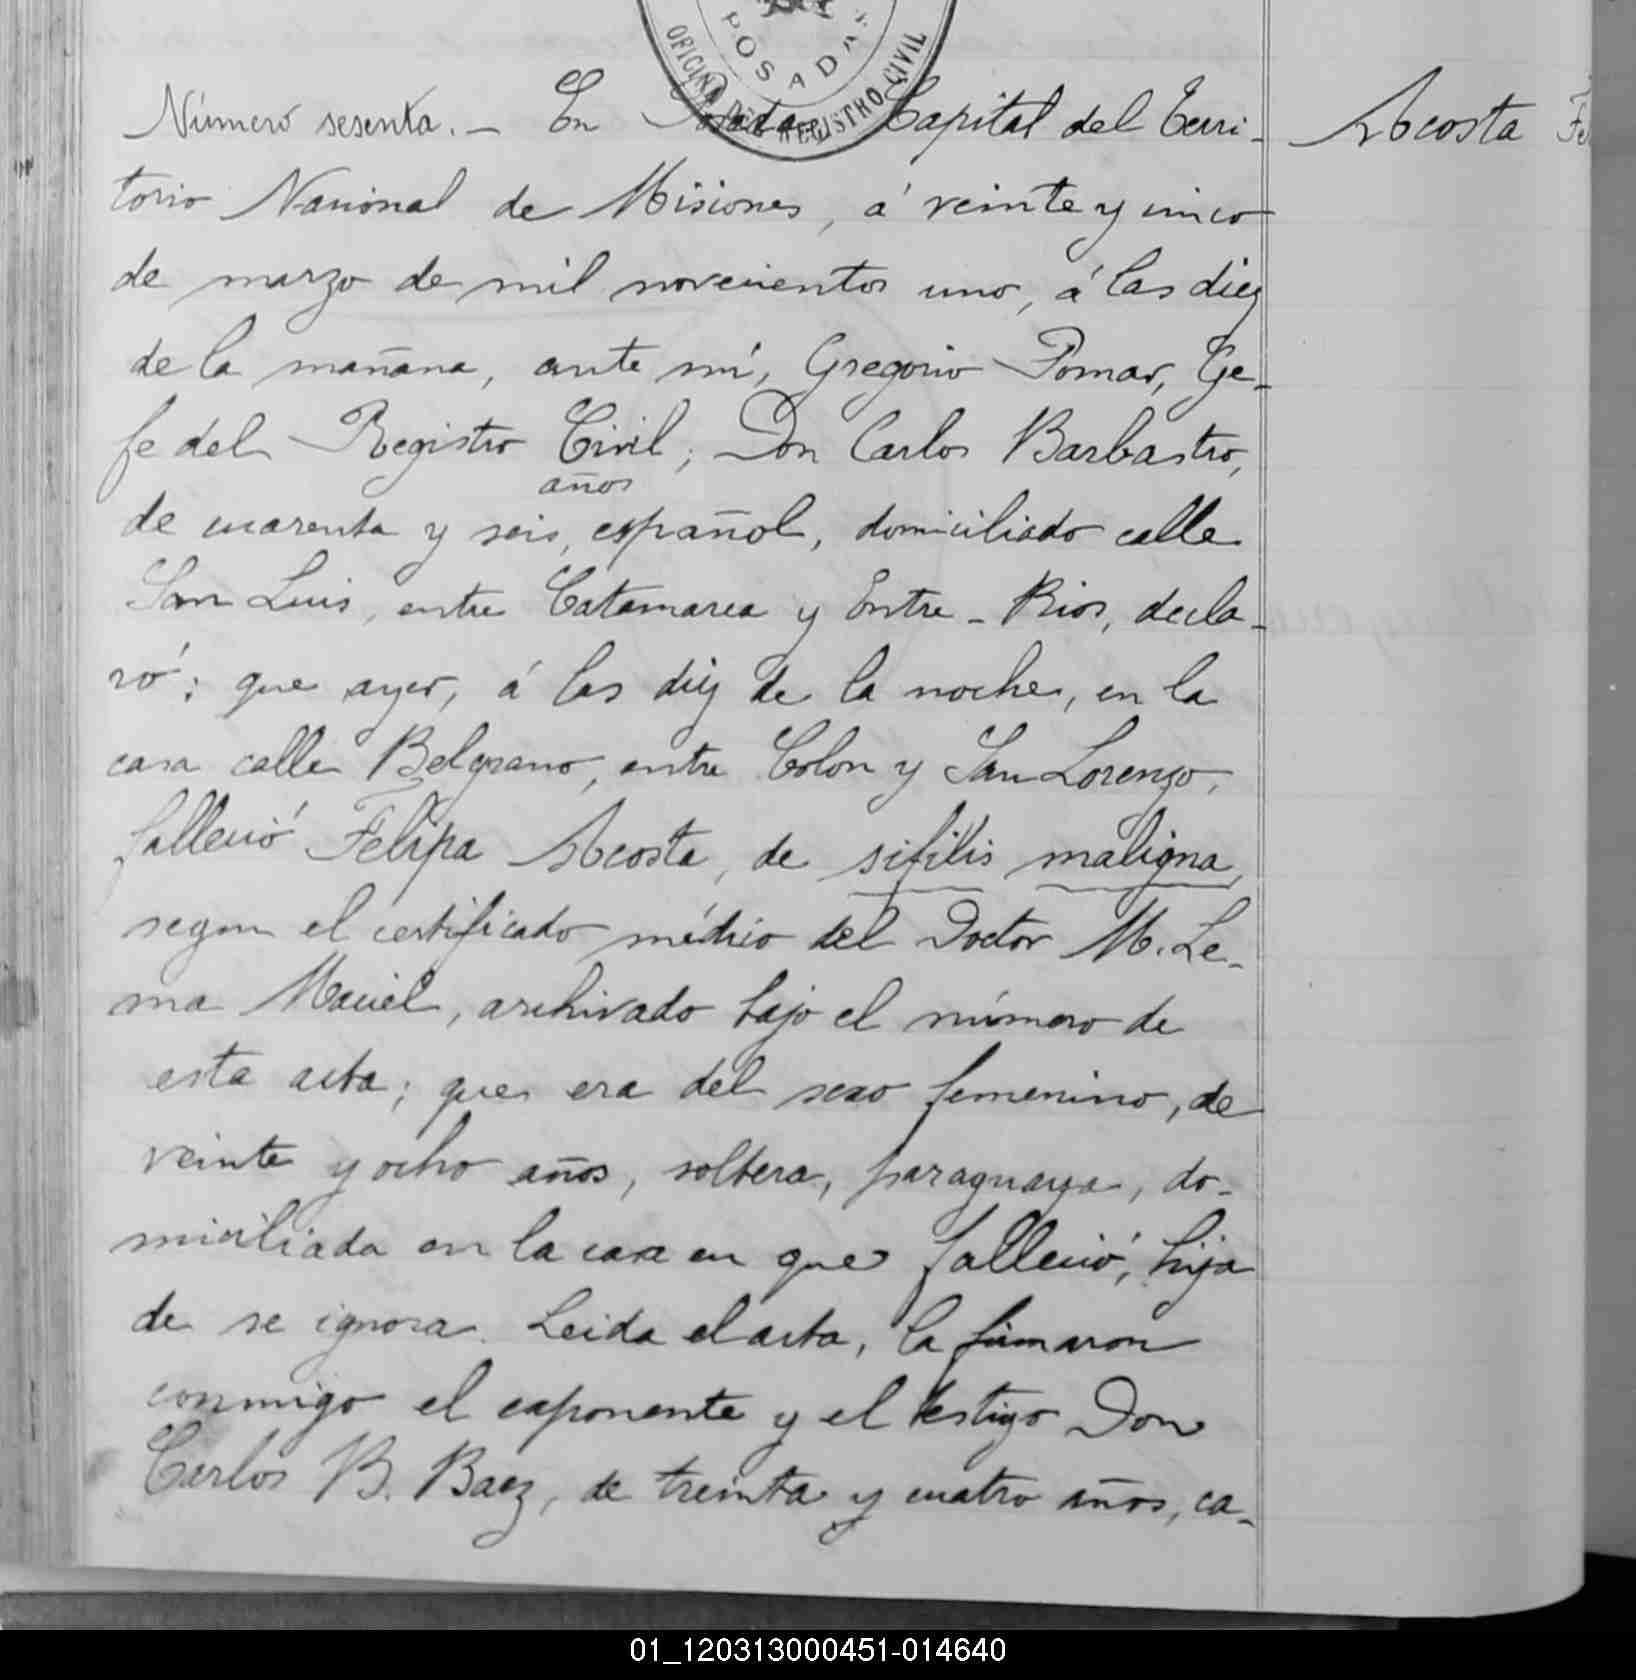 POSADAS
OFICINA DEL REGISTRO CIVIL
Número sesenta. — En Posadas Capital del Terri- Acosta Fe
torio Nacional de Misiones, á veinte y cinco
de marzo de mil novecientos uno, á las diez
de la mañana, ante mí, Gregorio Pomar, Ge-
fe del Registro Civil; Don Carlos Barbastro,
años
de cuarenta y seis, español, domiciliado calle
San Luis, entre Catamarca y Entre-Rios, decla-
ró: que ayer, á las diez de la noche, en la
casa calle Belgrano, entre Colon y San Lorenzo,
falleció Felipa Acosta, de sifilis maligna,
segun el certificado médico del Doctor M. Le-
ma Maciel, archivado bajo el número de
esta acta; que era del sexo femenino, de
veinte y ocho años, soltera, paraguaya, do-
miciliada en la casa en que falleció, hija
de se ignora. Leida el acta, la firmaron
conmigo el exponente y el testigo Don
Carlos B. Baez, de treinta y cuatro años, ca-
01_120313000451-014640